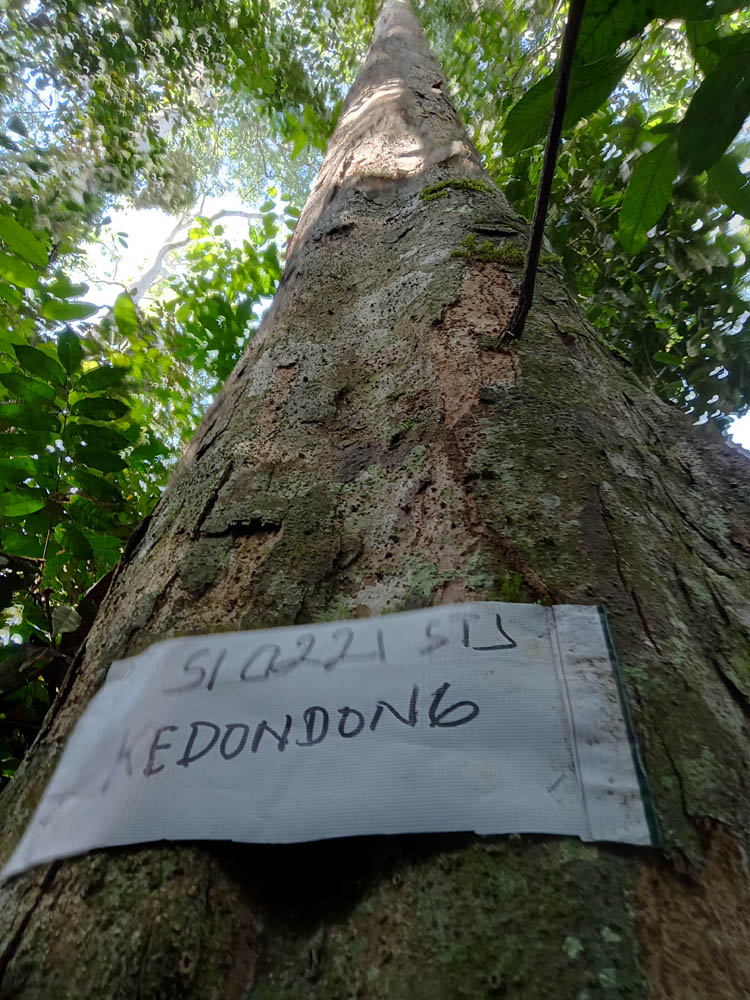 S10221 STJ
KEDONDONG